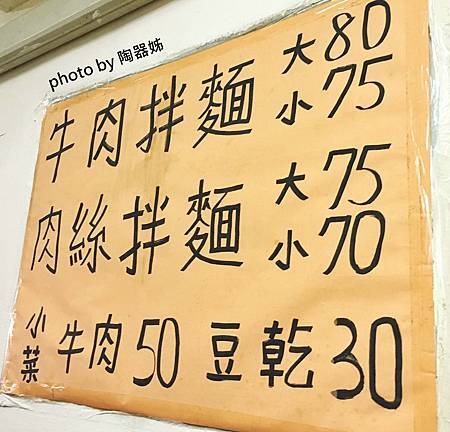 photo by 陶器姊
牛肉拌麵 大80
小75
肉絲拌麵 大75
小70
小菜 牛肉50 豆乾30